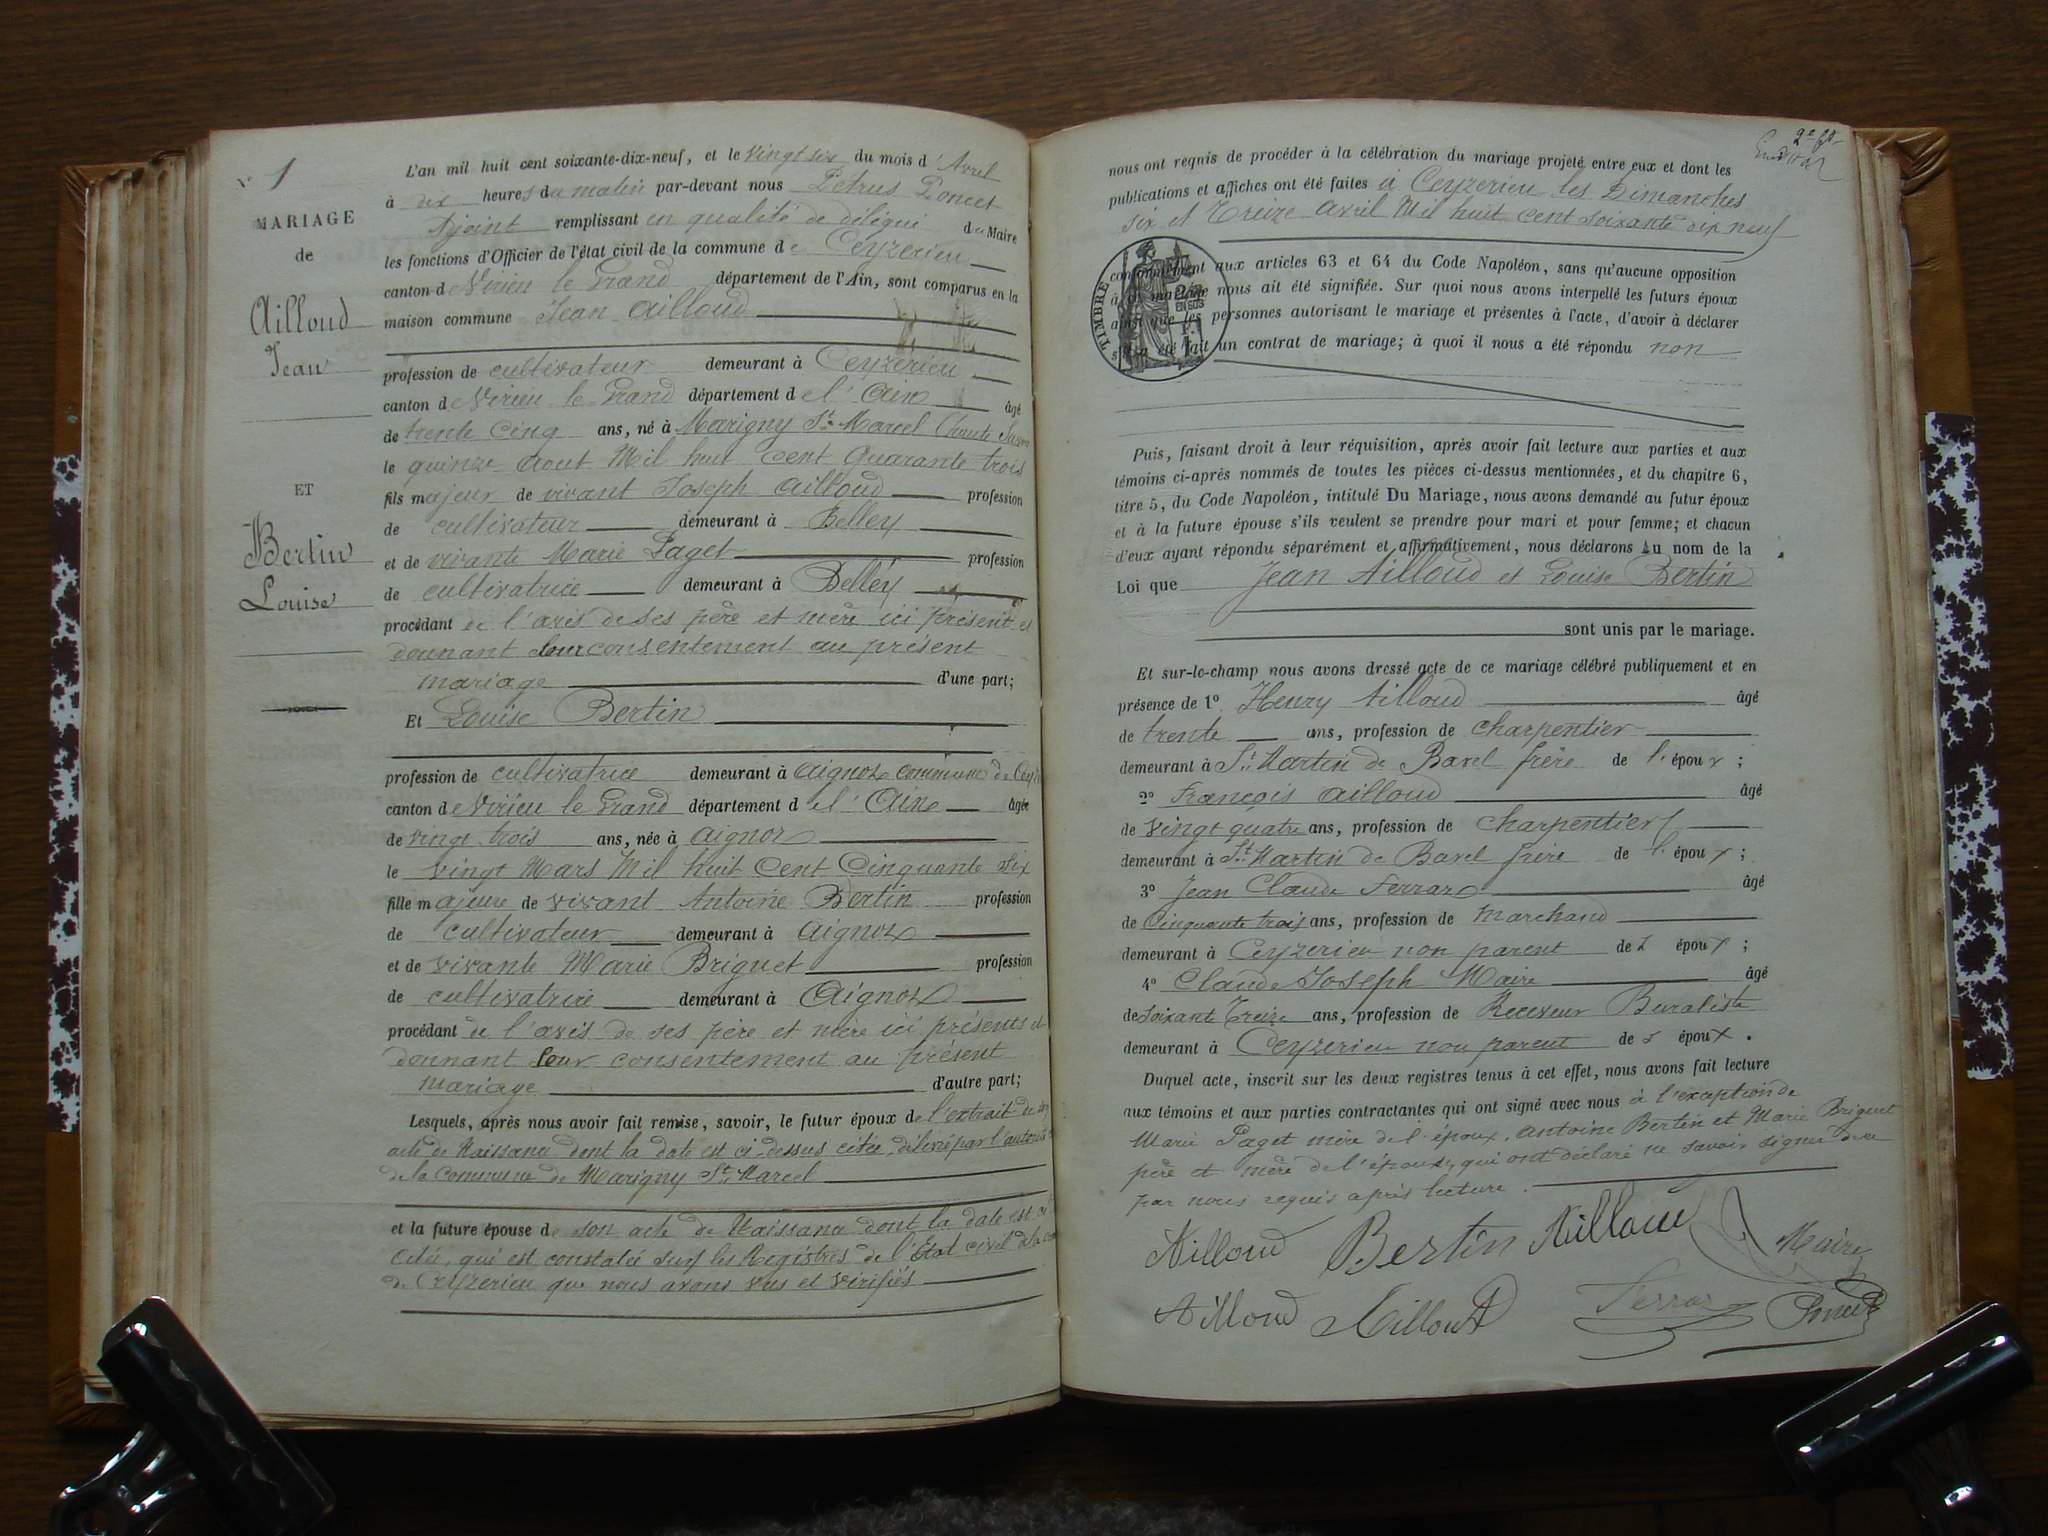 N° 1
MARIAGE
de
Ailloud
Jean
ET
Bertin
Louise
L'an mil huit cent soixante-dix-neuf, et le vingt six du mois d'Avril
à dix heures du matin par-devant nous Pétrus Poncet
Ajoint remplissant en qualité de délégué du Maire
les fonctions d'Officier de l'état civil de la commune de Ceyzerieu
canton de Virieu le Grand département de l'Ain, sont comparus en la
maison commune Jean Ailloud
profession de cultivateur demeurant à Ceyzerieu
canton de Virieu le Grand département de l'Ain âgé
de trente cinq ans, né à Marigny St Marcel (haute Savoie
le quinze aout Mil huit cent quarante trois
fils majeur de vivant Joseph Ailloud profession
de cultivateur demeurant à Belley
et de vivante Marie Paget profession
de cultivatrice demeurant à Belley
procédant de l'avis de ses père et mère ici présent et
donnant leur consentement au présent
mariage d'une part;
Et Louise Bertin
profession de cultivatrice demeurant à Aignoz commune de Ceyz
canton de Virieu le Grand département de l'Ain âgée
de vingt trois ans, née à Aignoz
le vingt Mars Mil huit Cent Cinquante Six
fille majeure de vivant Antoine Bertin profession
de cultivateur demeurant à Aignoz
et de vivante Marie Briguet profession
de cultivatrice demeurant à Aignoz
procédant de l'avis de ses père et mère ici présents et
donnant leur consentement au présent
mariage d'autre part;
Lesquels, après nous avoir fait remise, savoir, le futur époux de l'extrait de son
acte de Naissance dont la date est ci-dessus citée, délivré par l'autorité
de la Commune de Marigny St Marcel
et la future épouse de son acte de Naissance dont la date est ci
citée, qui est constatée sur les Registres de l'Etat civil de la
de Ceyzerieu que nous avons vus et vérifiés
nous ont requis de procéder à la célébration du mariage projeté entre eux et dont les
publications et affiches ont été faites à Ceyzerieu les Dimanches
six et Treize Avril Mil huit cent soixante dix neuf
TIMBRE
conformément aux articles 63 et 64 du Code Napoléon, sans qu'aucune opposition
à ce mariage nous ait été signifiée. Sur quoi nous avons interpellé les futurs époux
ainsi que les personnes autorisant le mariage et présentes à l'acte, d'avoir à déclarer
s'il a été fait un contrat de mariage; à quoi il nous a été répondu non
Puis, faisant droit à leur réquisition, après avoir fait lecture aux parties et aux
témoins ci-après nommés de toutes les pièces ci-dessus mentionnées, et du chapitre 6,
titre 5, du Code Napoléon, intitulé Du Mariage, nous avons demandé au futur époux
et à la future épouse s'ils veulent se prendre pour mari et pour femme; et chacun
d'eux ayant répondu séparément et affirmativement, nous déclarons Au nom de la
Loi que Jean Ailloud et Louise Bertin
sont unis par le mariage.
Et sur-le-champ nous avons dressé acte de ce mariage célébré publiquement et en
présence de 1° Henry Ailloud âgé
de trente ans, profession de charpentier
demeurant à St Martin de Bavel frère de l'époux;
2° François Ailloud âgé
de vingt quatre ans, profession de charpentier
demeurant à St Martin de Bavel frère de l'époux;
3° Jean Claude Ferraz âgé
de Cinquante trois ans, profession de Marchand
demeurant à Ceyzerieu non parent des époux;
4° Claude Joseph Maire âgé
de soixante Treize ans, profession de Receveur Buraliste
demeurant à Ceyzerieu non parent des époux.
Duquel acte, inscrit sur les deux registres tenus à cet effet, nous avons fait lecture
aux témoins et aux parties contractantes qui ont signé avec nous à l'exception de
Marie Paget mère de l'époux, Antoine Bertin et Marie Briguet
père et mère de l'épouse, qui ont déclaré ne savoir signer de ce
par nous requis après lecture.
Ailloud Bertin Ailloud Maire
Ailloud Ailloud Ferraz Poncet